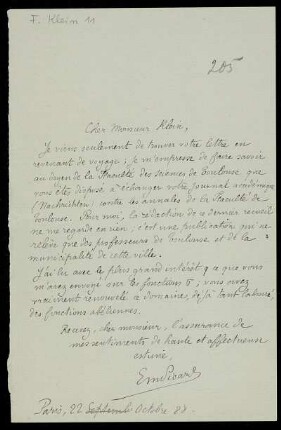 F. Klein 11
205
Cher Monsieur Klein,
Je viens seulement de trouver votre lettre en
revenant de voyage; je m'empresse de faire savoir
au doyen de la Faculté des sciences de Toulouse que
vous êtes disposé à échanger votre journal académique
(Nachrichten) contre les annales de la Faculté de
Toulouse. Pour moi, la rédaction de ce dernier recueil
ne me regarde en rien; c'est une publication qui ne
relève que des professeurs de Toulouse et de la
municipalité de cette ville.
J'ai lu avec le plus grand intérêt ce que vous
m'avez envoyé sur les fonctions σ; vous avez
vraiment renouvelé ce domaine, déjà tant
des fonctions abéliennes.
Recevez, cher monsieur, l'assurance de
mes sentiments de haute et affectueuse
estime.
Em Picard
Paris, 22 Septemb Octobre 88.